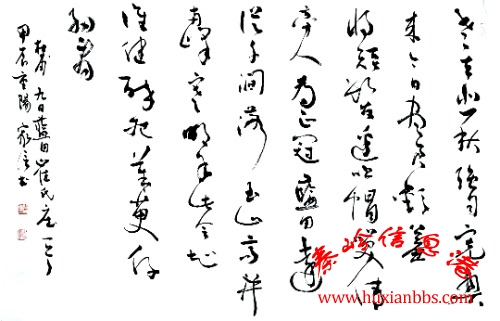 老去悲秋强自宽興
来今日尽君歡羞
将短髮还吹帽笑倩
旁人为正冠藍田遠
從千澗落玉山高并
兩峰寒明年此会知
谁健醉把茱萸仔
細看
杜甫九日藍田崔氏庄一首
甲辰重陽
秦岭信息港
www.huxianbbs.com